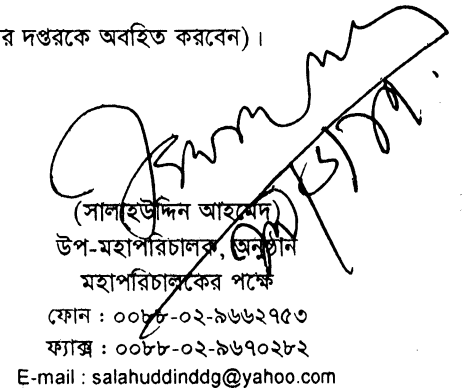 র দপ্তরকে অবহিত করবেন)।
(সালাহউদ্দিন আহমেদ)
উপ-মহাপরিচালক, অনুষ্ঠান
মহাপরিচালকের পক্ষে
ফোন : ০০৮৮-০২-৯৬৬২৭৫৩
ফ্যাক্স : ০০৮৮-০২-৯৬৭০২৮২
E-mail : salahuddinddg@yahoo.com